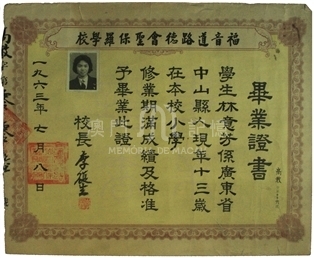 福音道路德會聖保羅學校
畢業證書
學生林意芳係廣東省
中山縣人現年十三歲
在本校小學
修業期滿成績及格准
予畢業此證
校長
一九六三年七月八日
MEMÓRIA DE MACAU